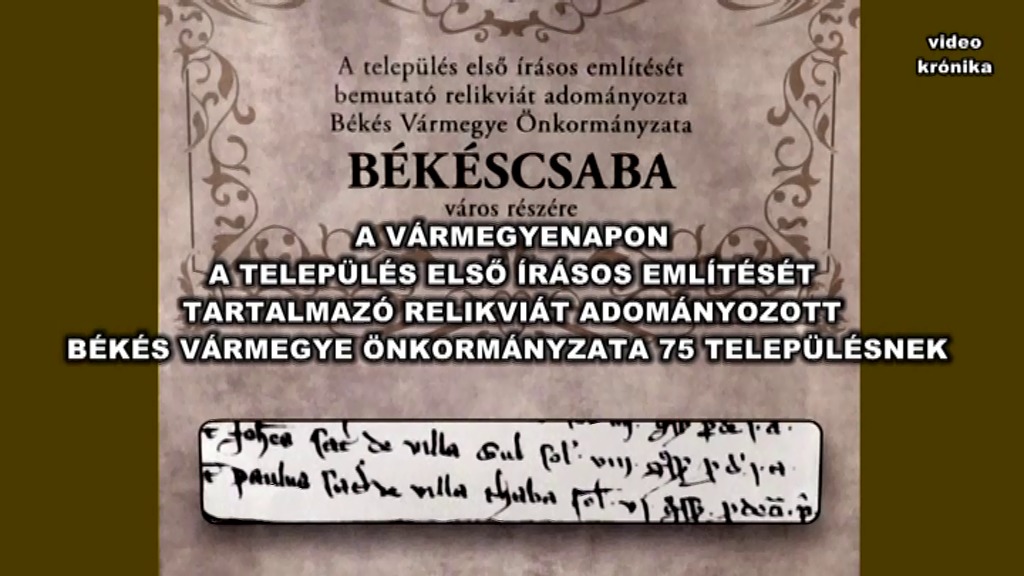 video
krónika
A település első írásos említését
bemutató relikviát adományozta
Békés Vármegye Önkormányzata
BÉKÉSCSABA
város részére
A VÁRMEGYENAPON
A TELEPÜLÉS ELSŐ ÍRÁSOS EMLÍTÉSÉT
TARTALMAZÓ RELIKVIÁT ADOMÁNYOZOTT
BÉKÉS VÁRMEGYE ÖNKORMÁNYZATA 75 TELEPÜLÉSNEK
de villa
paulus de villa chaba